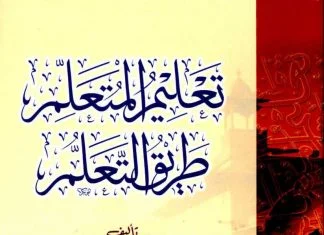 تعليم المتعلم
طريق التعلم
تأليف